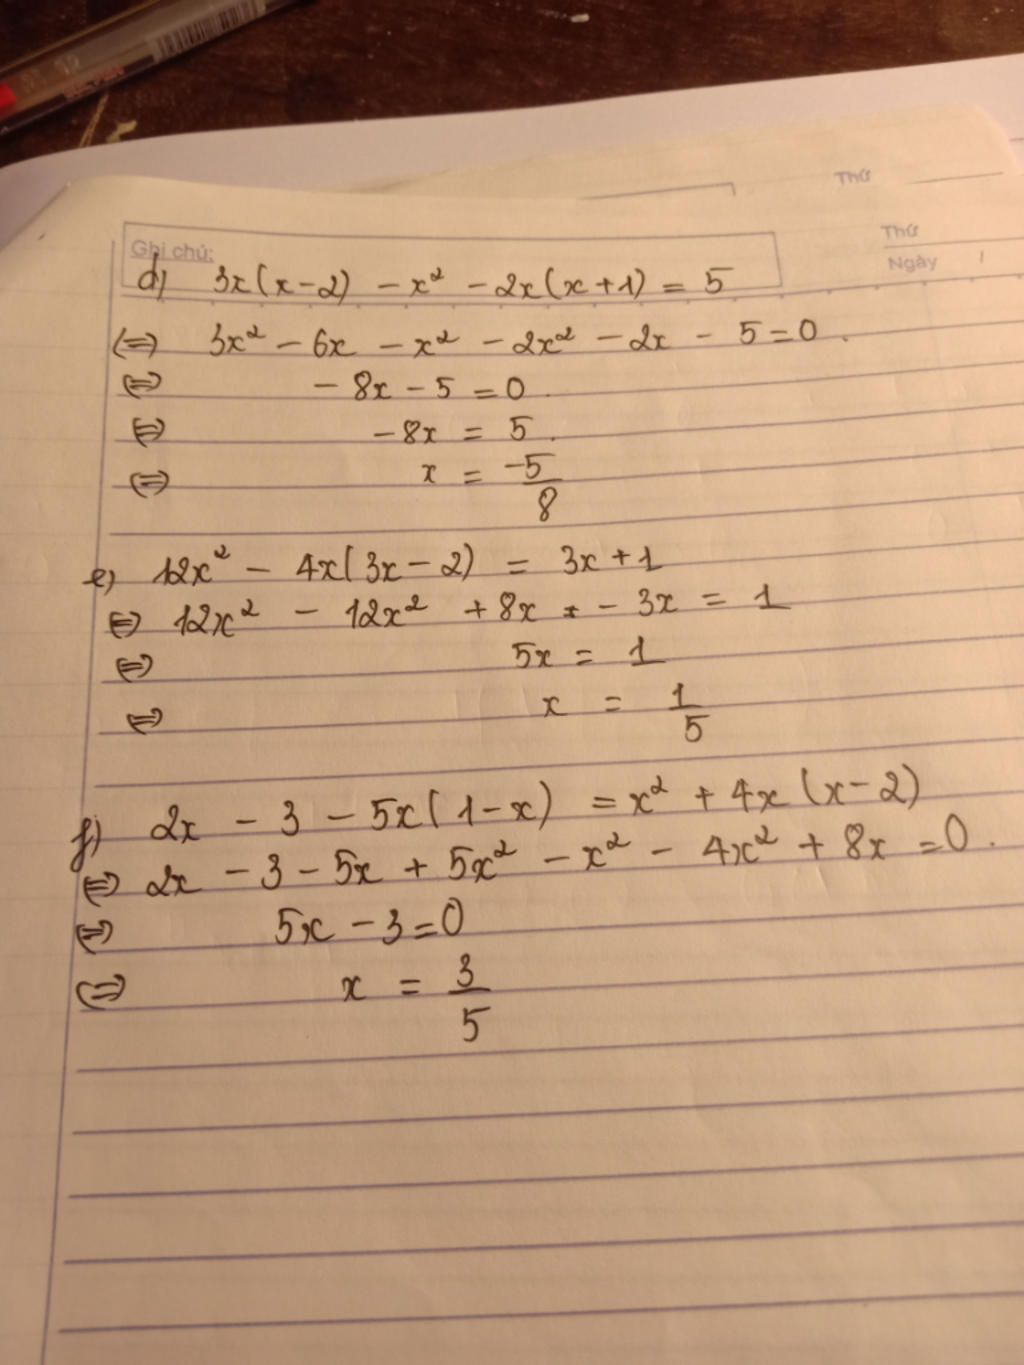 Thứ
Thứ
Ghi chú:
Ngày
d) 3x(x-2) - x² - 2x(x+1) = 5
(=) 3x² - 6x - x² - 2x² - 2x - 5 = 0.
(=) - 8x - 5 = 0.
(=) -8x = 5.
(=) x = -5/8
e) 12x² - 4x(3x-2) = 3x+1
(=) 12x² - 12x² + 8x - 3x = 1
(=) 5x = 1
(=) x = 1/5
f) 2x - 3 - 5x(1-x) = x² + 4x(x-2)
(=) 2x - 3 - 5x + 5x² - x² - 4x² + 8x = 0.
(=) 5x - 3 = 0
(=) x = 3/5